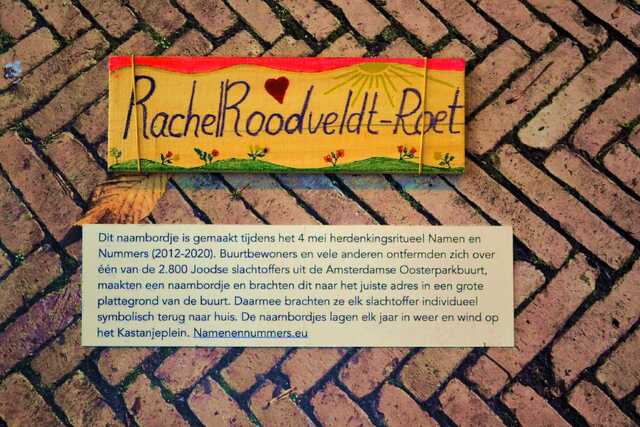 Rachel Roodveldt-Roet
Dit naambordje is gemaakt tijdens het 4 mei herdenkingsritueel Namen en
Nummers (2012-2020). Buurtbewoners en vele anderen ontfermden zich over
één van de 2.800 Joodse slachtoffers uit de Amsterdamse Oosterparkbuurt,
maakten een naambordje en brachten dit naar het juiste adres in een grote
plattegrond van de buurt. Daarmee brachten ze elk slachtoffer individueel
symbolisch terug naar huis. De naambordjes lagen elk jaar in weer en wind op
het Kastanjeplein. Namenennummers.eu